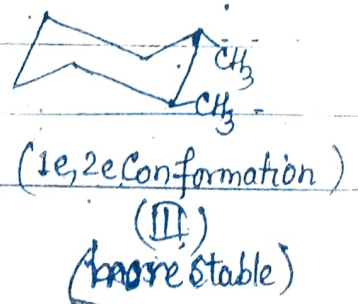 CH3
CH3
(1e,2e Conformation)
(II)
(more stable)